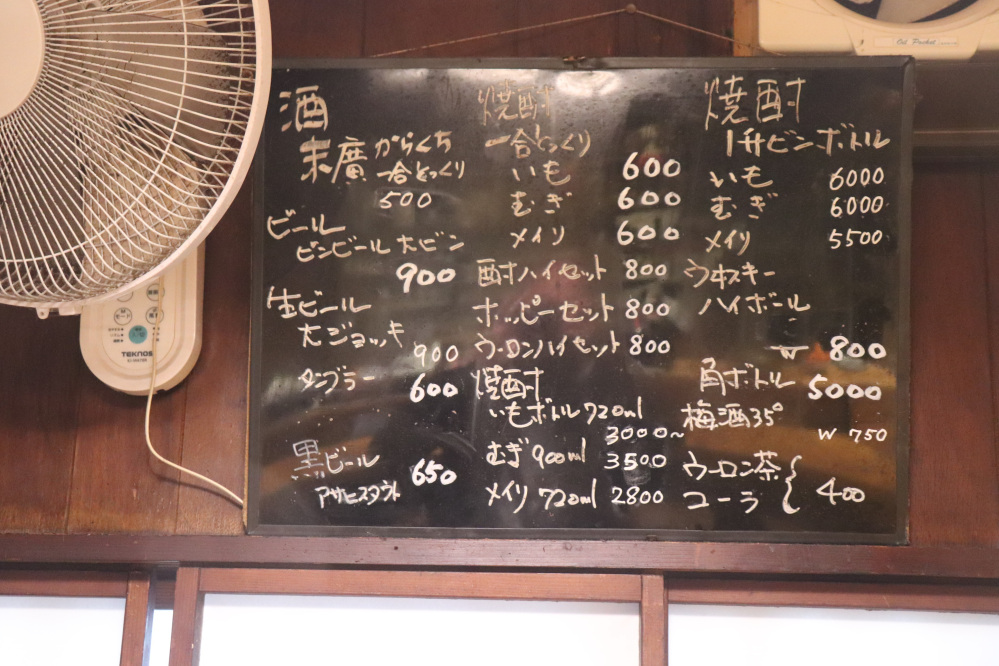 酒
末廣 からくち
一合とっくり
500
ビール
ビンビール 大ビン
900
生ビール
大ジョッキ
900
タンブラー
600
黒ビール
アサヒスタウト
650
焼酎
一合とっくり
いも 600
むぎ 600
メイリ 600
酎ハイセット 800
ホッピーセット 800
ウーロンハイセット 800
焼酎
いもボトル 720ml
3000~
むぎ 900ml 3500
メイリ 720ml 2800
焼酎
1升ビンボトル
いも 6000
むぎ 6000
メイリ 5500
ウヰスキー
ハイボール
W 800
角ボトル 5000
梅酒35°
W 750
ウーロン茶
コーラ } 400
TEKNOS